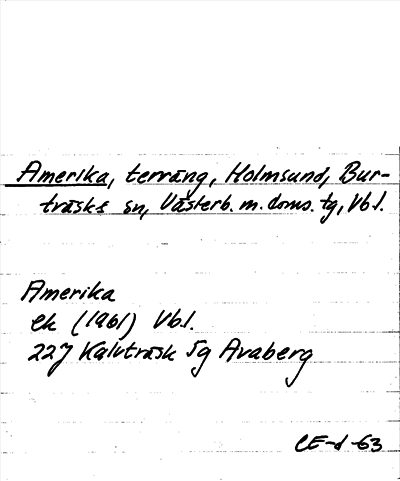 Amerika, terräng, Holmsund, Bur-
träsks sn, Västerb. m. doms. tg, Vbl.
Amerika
ek (1961) Vbl.
22J Kalvträsk 5g Avaberg
CE-d-63